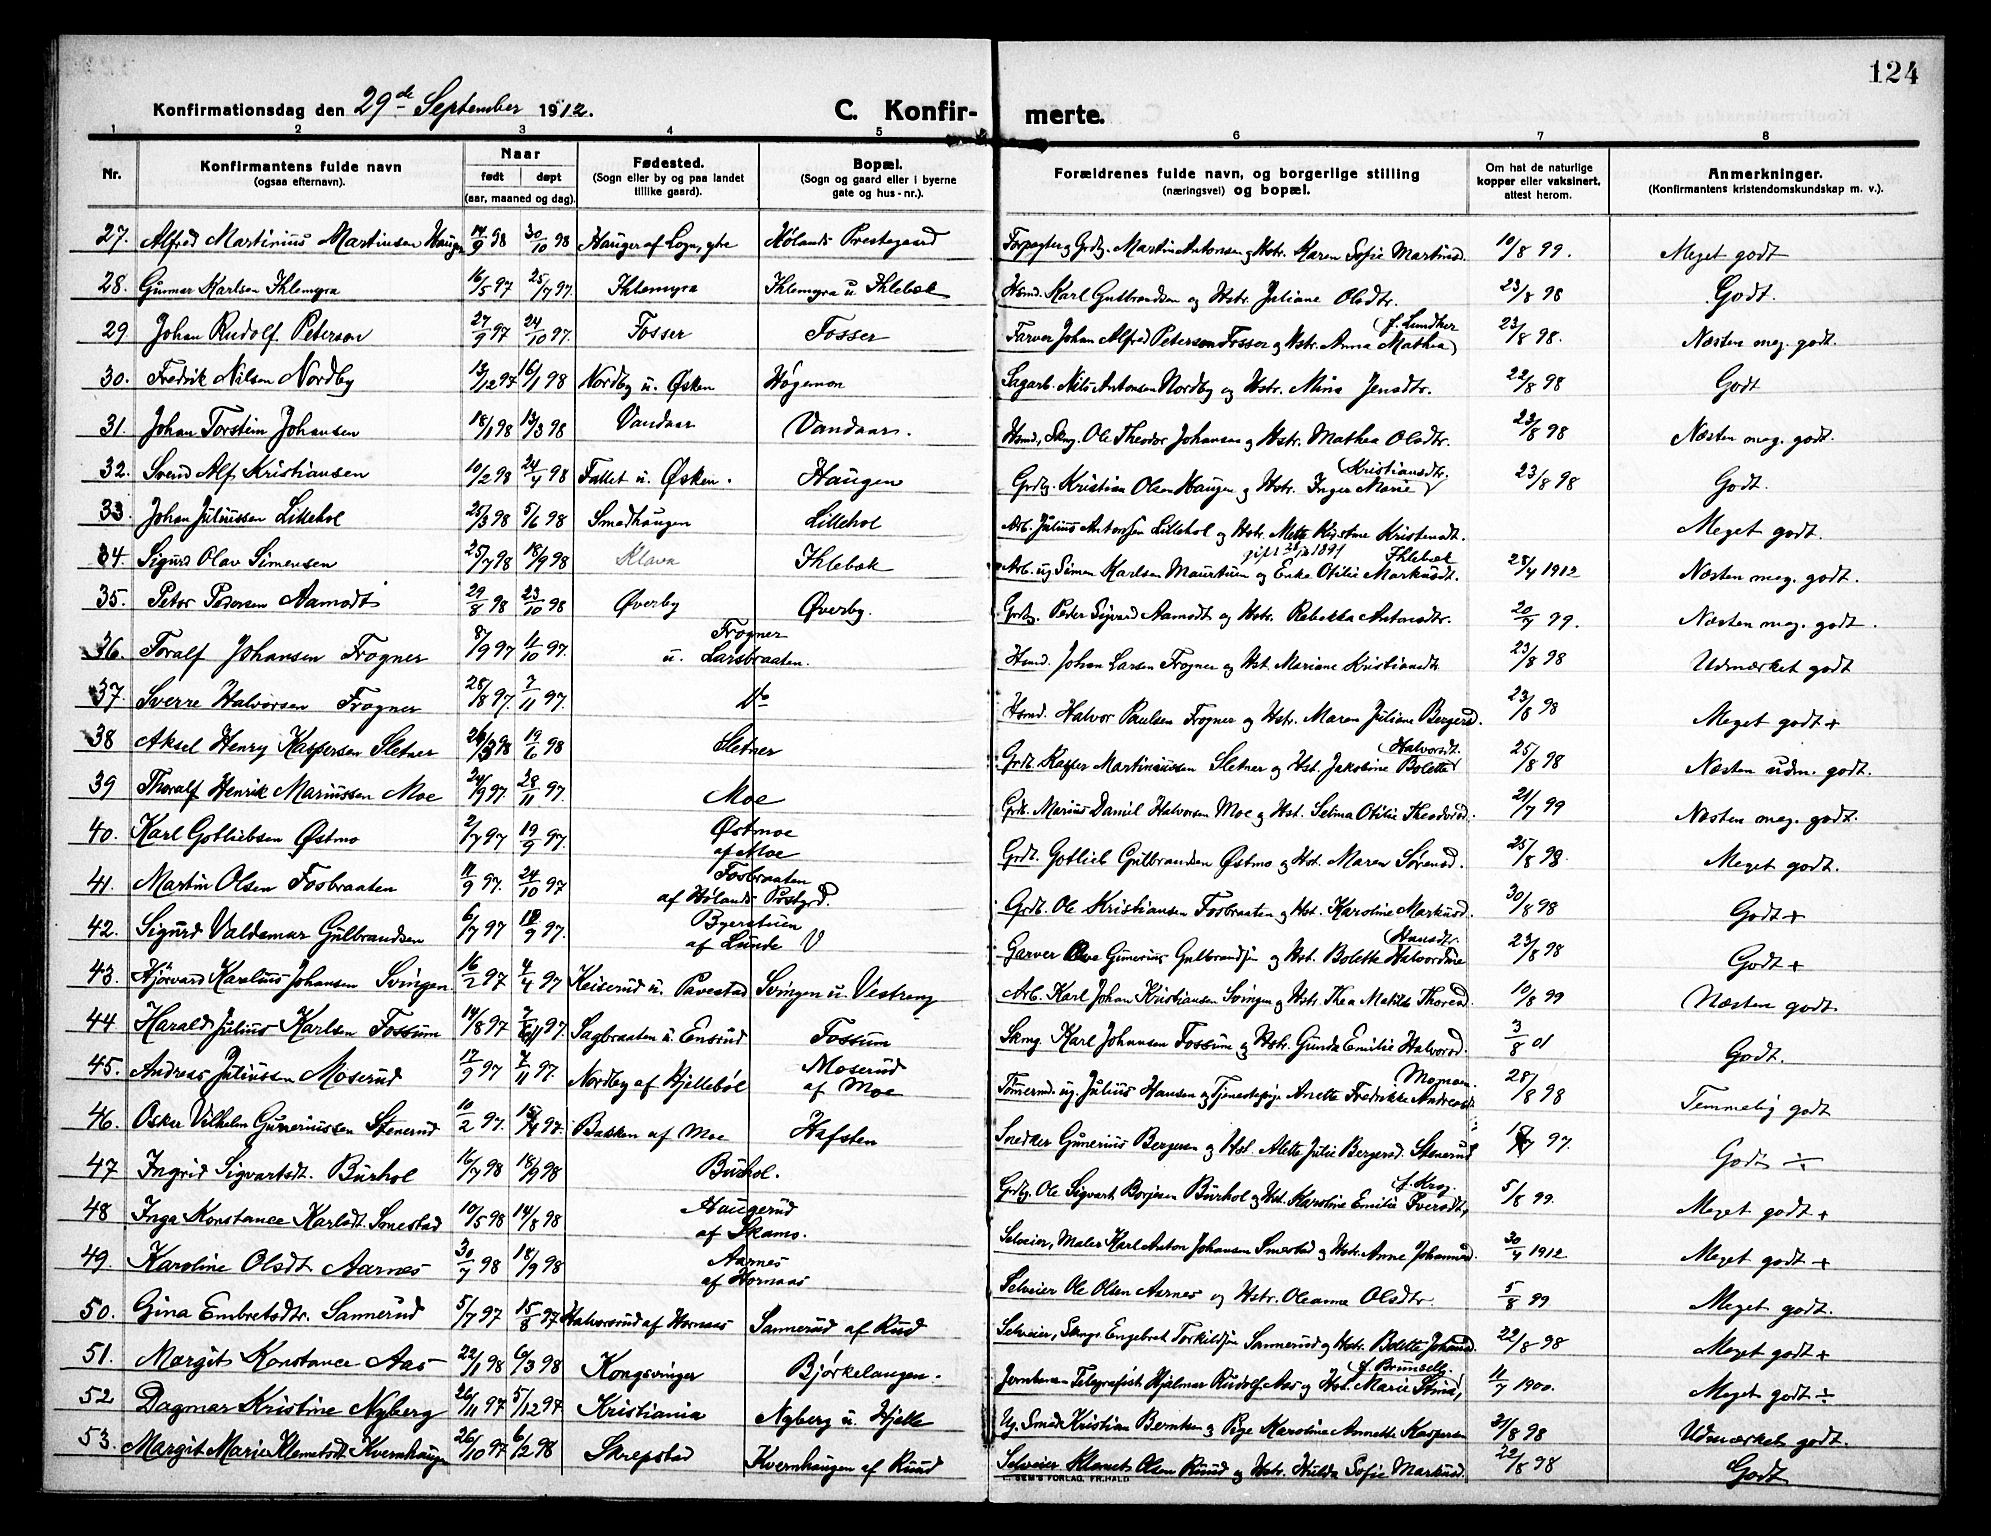 124
Konfirmationsdag den 29de September 1912.
C. Konfirmerte.
1 2 3 4 5 6 7 8
Nr.
Konfirmantens fulde navn
(ogsaa efternavn).
Naar
født døpt
(aar, maaned og dag).
Fødested.
(Sogn eller by og paa landet
tillike gaard).
Bopæl.
(Sogn og gaard eller i byerne
gate og hus-nr.).
Forældrenes fulde navn, og borgerlige stilling
(næringsvei) og bopæl.
Om hat de naturlige
kopper eller vaksinert,
attest herom.
Anmerkninger.
(Konfirmantens kristendomskundskap m. v.).
27. Alfred Martinius Martinsen Hauger 14/9 98 30/10 98 Hauger af Logn, ytre Hølands Prestegaard Forpagter, Grdbg. Martin Antonsen og Hstr. Karen Sofie Martinsd. 10/8 99. Meget godt
28. Gunnar Karlsen Ihlemyra 16/5 97 25/7 97. Ihlemyra Ihlemyra u. Ihlebæk Hsmd. Karl Gulbrandsen og Hstr. Juliane Olsdtr. 23/8 98 Godt.
29 Johan Rudolf Peterson 27/9 97 24/10 97. Fosser Fosser Farver Johan Alfred Peterson Fosser og Hstr. Anna Mathea f. Lundker 23/8 98. Næsten meg. godt.
30. Fredrik Nilsen Nordby 13/12 97 16/1 98 Nordby u. Øsken Høgemon Sagarb. Nils Antonsen Nordby og Hstr. Mina Jensdtr. 22/8 98 Godt
31. Johan Torstein Johansen 18/1 98 13/3 98 Vandaar Vandaar. Hsmd, Skmg. Ole Theodor Johansen og Hstr. Mathea Olsdtr. 23/8 98 Næsten meg. godt.
32. Svend Alf Kristiansen 10/2 98 24/4 98 Fallet u. Øsken. Haugen Grdbg. Kristian Olsen Haugen og Hstr. Inger Marie Kristiansdtr. 23/8 98 Godt.
33. Johan Juliussen Lillehol 25/3 98 5/6 98 Smedhaugen Lillehol Arb. Julius Antonsen Lillehol og Hstr. Mette Kristine Kristensdt. Meget godt.
34. Sigurd Olav Simensen 25/7 98 18/9 98 Klava Ihlebæk Arb. ug Simen Karlsen Maurtuen og Enke Otilie Markusdt. Ihlebæk 28/4 1912 Næsten meg. godt.
35. Peter Pedersen Aamodt 29/8 98 23/10 98 Øverby Øverby. Grdbg. Peder Sigvard Aamodt og Hstr. Rebekka Antonsdtr. 20/7 99. Næsten meg. godt.
36. Toralf Johansen Frogner 8/9 97 4/10 97. Frogner
u. Larsbraaten. Hsmd. Johan Larsen Frogner og Hst. Mariane Kristiansdt 23/8 98 Udmærket godt
37. Sverre Halvorsen Frogner 28/8 97. 7/11 97. do Hsmd. Halvor Paulsen Frogner og Hstr. Maren Juliane Bergersd. 23/8 98 Meget godt +
38 Aksel Henry Kaspersen Sletner 26/3 98 19/6 98 Sletner Grdb. Kasper Martiniussen Sletner og Hst. Jakobine Bolette Halvorsdt. 25/8 98 Næsten udm. godt.
39 Thoralf Henrik Mariussen Moe 24/9 97. 28/11 97. Moe Grdb. Marius Daniel Halvorsen Moe og Hst. Selma Otilie Theodorsd. 21/7 99 Næsten meg. godt.
40. Karl Gotliebsen Østmo 2/7 97 19/9 97. Østmoe
af Moe Grdb. Gotlieb Gulbrandsen Østmo og Hst. Maren Sørensd. 25/8 98. Meget godt.
41. Martin Olsen Fosbraaten 11/9 97. 24/10 97 Fosbraaten
af Hølands Pstgrd. Grdb. Ole Kristiansen Fosbraaten og Hst. Karoline Markusd. 30/8 98 Godt +
42. Sigurd Valdemar Gulbrandsen 6/7 97 19/9 97. Byerstuen
af Lunde V Garver Ove Gunerius Gulbrandsen og Hst. Bolette Halvordine Hansdtr. 23/8 98 Godt +
43. Hjørvard Karelius Johansen Svingen 16/2 97 4/4 97 Keiserud u. Pavestad Svingen u. Vestreng Arb. Karl Johan Kristiansen Svingen og Hstr. Thea Matilde Thorsd. 10/8 99 Næsten godt
44 Harald Julius Karlsen Fossum 14/8 97 7/11 97. Sagbraaten u. Ensrud Fossum Skmg. Karl Johansen Fossum og Hstr. Gunda Emilie Halvorsd. 3/8 01 Godt.
45. Andreas Juliussen Moserud 17/9 97 7/11 97. Nordby af Hjellebøl Moserud
af Moe Tømmermd. ug. Julius Hansen og Tjenestepige Anette Fredrikke Andreasdt. Momoen. 28/8 98 Temmelig godt
46. Oskar Vilhelm Guneriussen Stenerud 10/2 97. 15/4 97. Bakken af Moe Hafsten Snedker Gunerius Bergesen og Hst. Mette Julie Bergersd. Stenerud 97. Godt ÷
47 Ingrid Sigvartsdt. Burhol 16/7 98 18/9 98 Burhol. Grdbg. Ole Sigvart Borgesen Burhol og Hst. Karoline Emilie Iversdt, f. Krog. 5/8 99. Meget godt +
48 Inga Konstance Karlsdt. Smestad 10/5 98 14/8 98 Haugerud
af Skamo. Selveier, Maler Karl Anton Johansen Smestad og Hstr. Anne Johannesd. 30/4 1912 Meget godt +
49. Karoline Olsdt Aarnes 30/7 98 18/9 98 Aarnes
af Hornaas Selveier Ole Olsen Aarnes og Hstr. Oleanne Olsdtr. 5/8 99 Meget godt.
50. Gina Embretsdtr. Sannerud 5/7 97 15/8 97 Halvorsrud af Hornaas Sannerud af Rud Selveier, Skmgr Engebret Torkildsen Sannerud og Hstr. Bolette Johansd. 22/8 98 Meget godt +
51. Margit Konstance Aas 22/1 98 6/3 98 Kongsvinger Bjørkelangen. Jernbane Telegrafist Hjalmar Rudolf Aas og Hst. Marie Stina, f. Brunsell. 11/7 1900. Meget godt ÷
52 Dagmar Kristine Nyberg 26/11 97 5/12 97 Kristiania Nyberg u. Hjelle Ug. Smed Kristian Berntsen og Pige Karoline Annette Kaspersen 31/8 98 Udmærket godt.
53. Margit Marie Klemetsdt. Kvernhaugen 26/10 97 6/2 98 Skrepstad Kvernhaugen af Ruud Selveier Klemet Olsen Ruud og Hstr. Hulda Sofie Markusd. 22/8 98 Godt
SEM'S FORLAG, FR.HALD